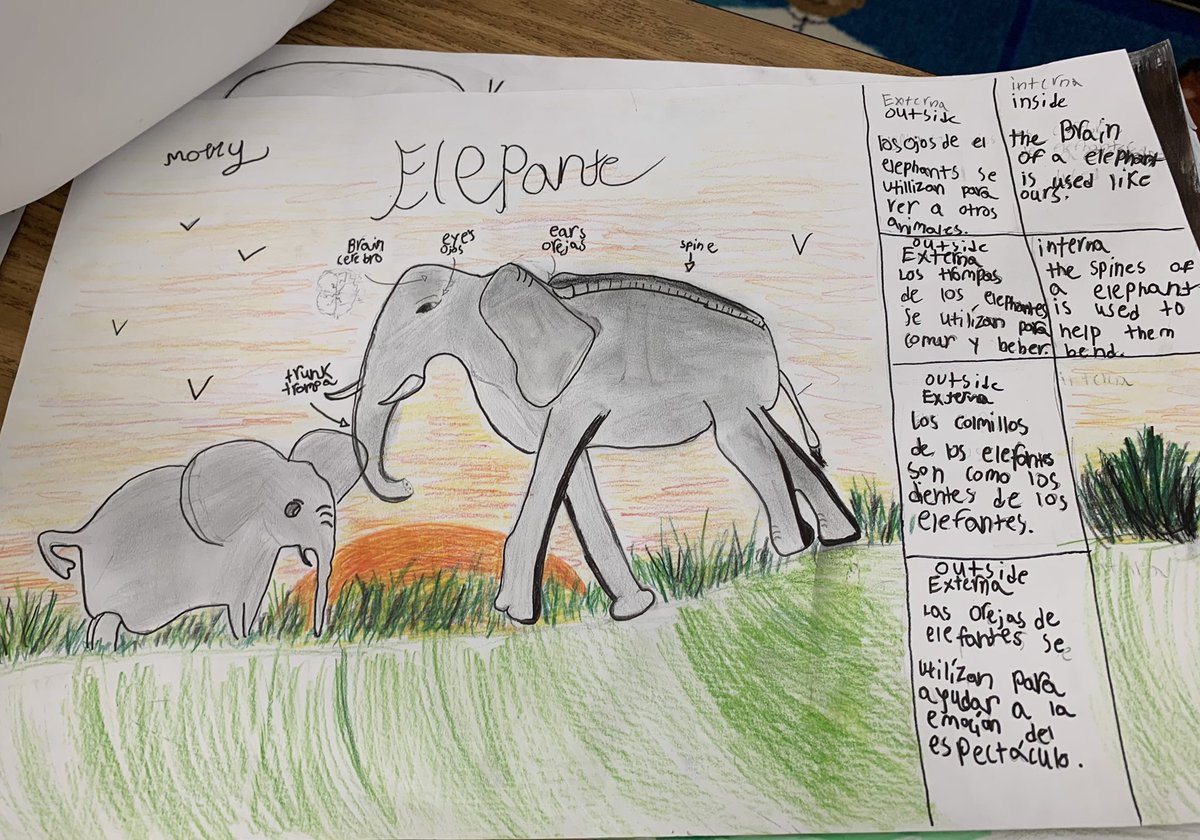 Molly
Elepante
Brain
cerebro
eyes
ojos
ears
orejas
spine
trunk
trompa
Externa
outside
los ojos de el
elephants se
utilizan para
ver a otros
animales.
interna
inside
the Brain
of a elephant
is used like
ours.
outside
Externa
Los trompas
de los elefantes
se utilizan para
comar y beber.
interna
the spines of
a elephant
is used to
help them
bend.
outside
Externa
Los colmillos
de los elefantes
son como los
dientes de los
elefantes.
interna
outside
Externa
Las orejas de
elefantes se
utilízan para
ayudar a la
emoción del
espectáculo.